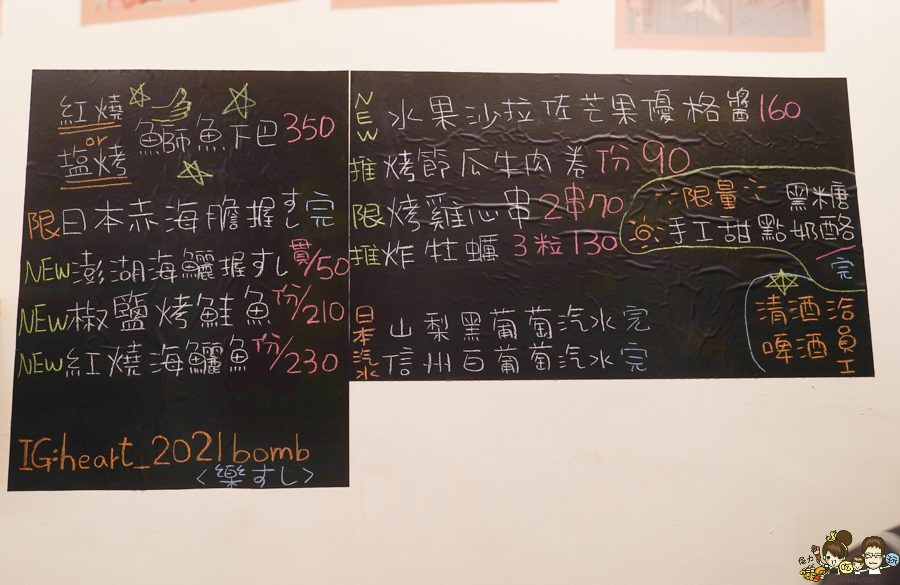 紅燒
or
塩烤
鰤魚下巴350
限日本赤海膽握すし完
NEW澎湖海鱺握すし貫/50
NEW椒鹽烤鮭魚份/210
NEW紅燒海鱺魚份/230
IG:heart_2021bomb
<樂すし>
NEW 水果沙拉佐芒果優格醬160
推 烤節瓜牛肉卷 份90
限 烤雞心串 2串70
推 炸牡蠣 3粒130
限量
手工甜點
黑糖
奶酪
完
日本汽水
山梨黑葡萄汽水 完
信州白葡萄汽水 完
清酒洽
啤酒員
工